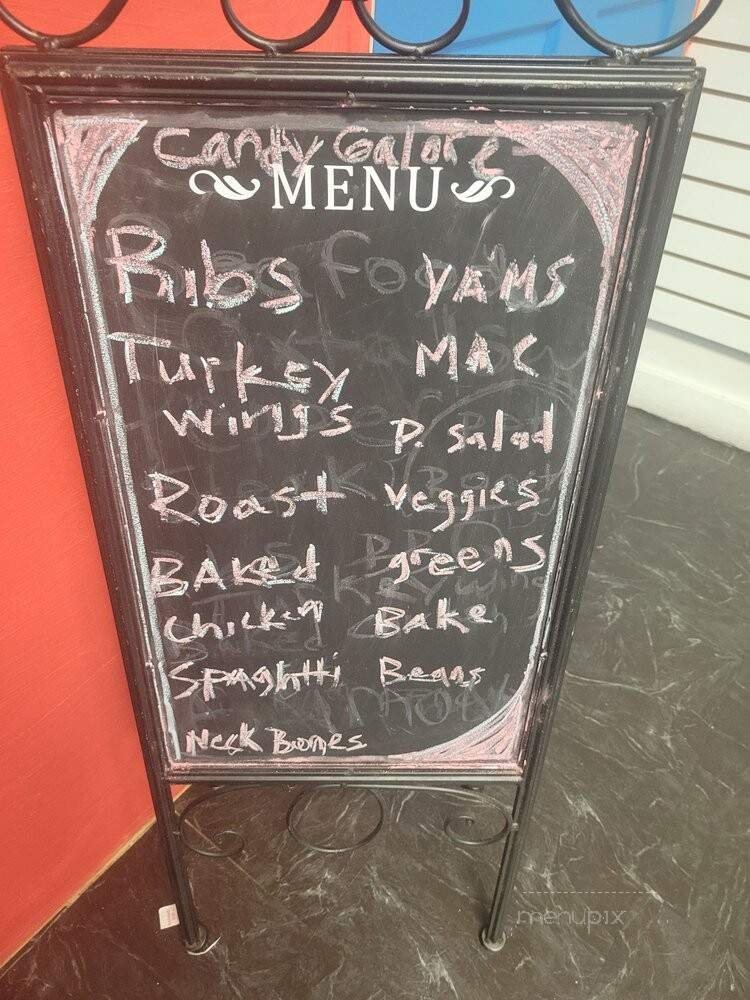 Candy Galore
MENU
Ribs
Turkey
wings
Roast
BAKed
chicken
SPAghtti
Neck Bones
YAMS
MAC
P. Salad
veggies
greens
Bake
Beans
menupix